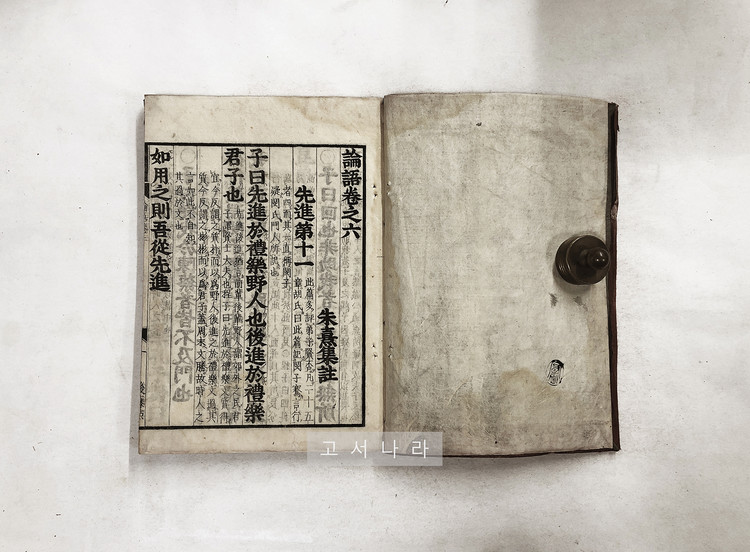 論語卷之六
朱熹集註
先進第十一
此篇多評弟子賢否凡二十五
章胡氏曰此篇記閔子騫言行
者四而其一直稱閔子
疑閔氏門人所記也
子曰先進於禮樂野人也後進於禮樂
君子也
先進後進猶言前輩後輩野人謂郊外之民君
子謂賢士大夫也程子曰先進於禮樂文質得
宜今反謂之質朴而以爲野人後進之於禮樂文過其
質今反謂之彬彬而以爲君子蓋周末文勝故時人之
言如此不自知
其過於文也
如用之則吾從先進
고서나라